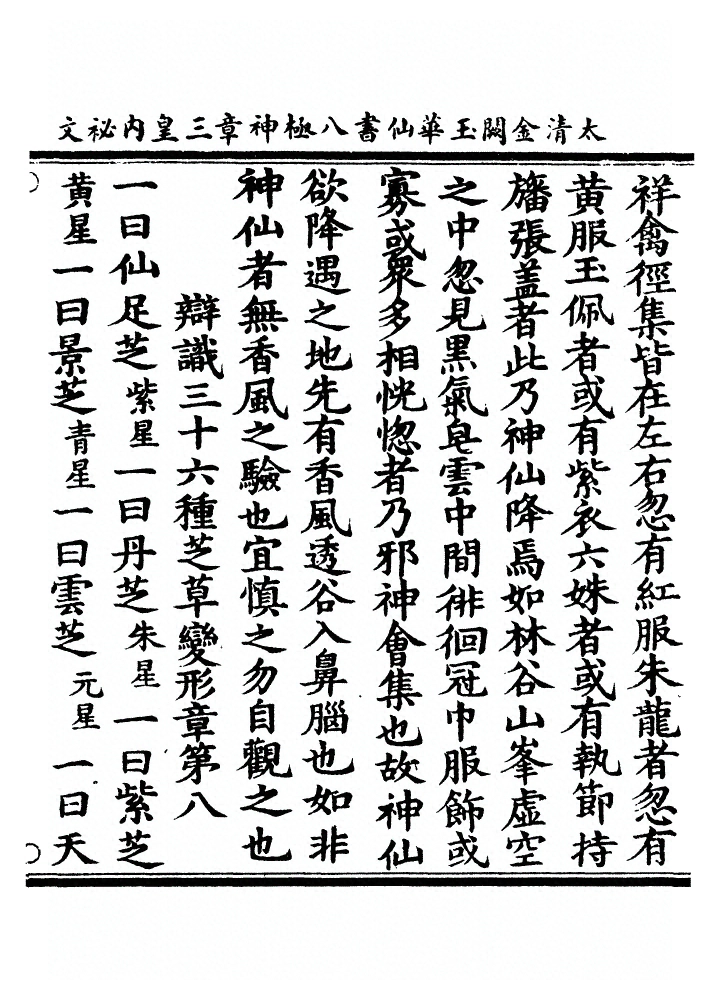 太清金闕玉華仙書八極神章三皇內祕文
祥禽徑集皆在左右忽有紅服朱龍者忽有
黃服玉佩者或有紫衣六姝者或有執節持
旛張盖者此乃神仙降焉如林谷山峯虛空
之中忽見黑氣皂雲中間徘徊冠巾服飾或
寡或衆多相恍惚者乃邪神會集也故神仙
欲降遇之地先有香風透谷入鼻腦也如非
神仙者無香風之驗也宜慎之勿自觀之也
辯識三十六種芝草變形章第八
一曰仙足芝紫星一曰丹芝朱星一曰紫芝
黃星一曰景芝青星一曰雲芝元星一曰天